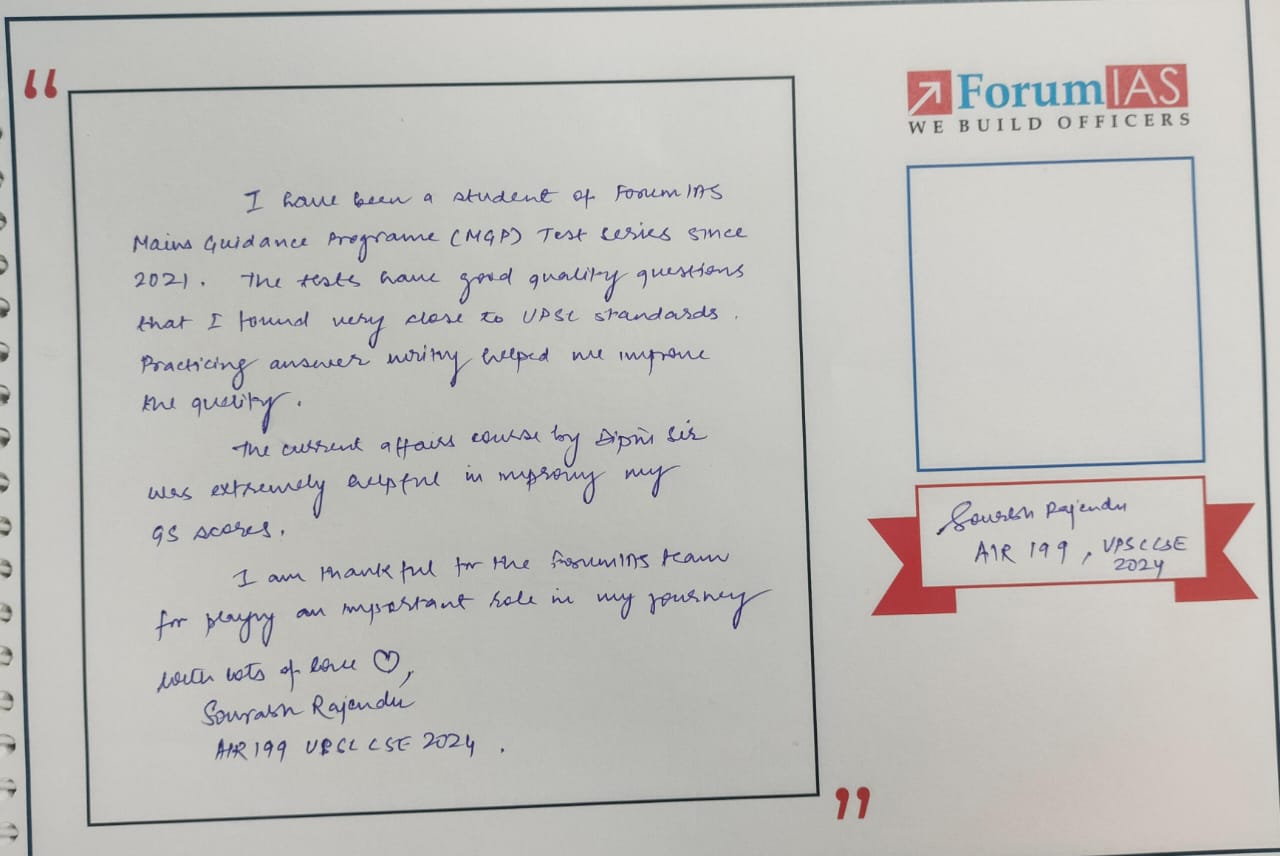 I have been a student of ForumIAS
Mains Guidance Programe (MGP) Test series since
2021. The tests have good quality questions
that I found very close to UPSC standards.
Practicing answer writing helped me improve
the quality.
The current affairs course by Dipin Sir
was extremely helpful in improving my
GS scores.
I am thankful for the ForumIAS team
for playing an important role in my journey
with lots of love ♡,
Sourabh Rajendu
AIR 199 UPSC CSE 2024.
ForumIAS
WE BUILD OFFICERS
Sourabh Rajendu
AIR 199, UPSC CSE
2024